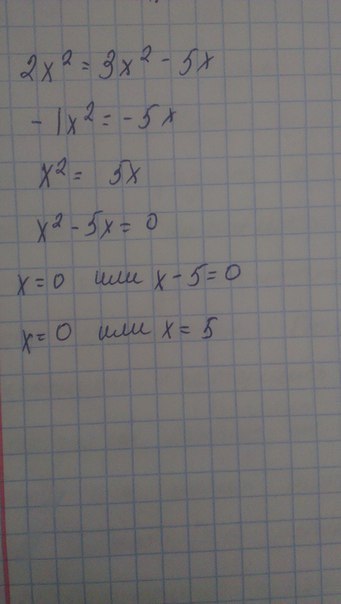 2x² = 3x² - 5x
- 1x² = - 5x
x² = 5x
x² - 5x = 0
x = 0 или x - 5 = 0
x = 0 или x = 5